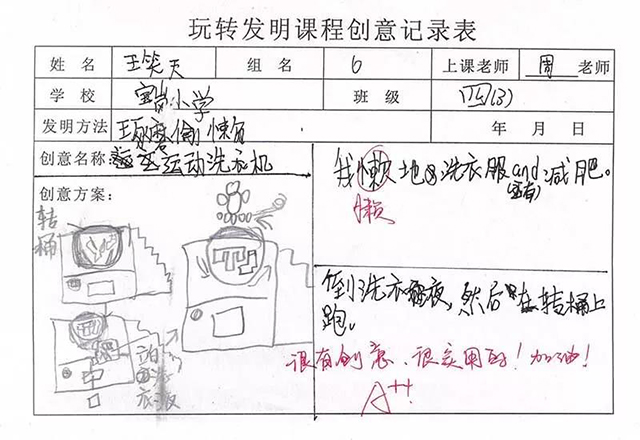 玩转发明课程创意记录表
姓名 王笑天 组名 6 上课老师 周 老师
学校 小学 班级 四(3)
发明方法 偷懒 年 月 日
创意名称: 运动洗衣机
我懒地洗衣服and(还有)减肥。
懒
创意方案:
转桶
倒洗衣液,然后在转桶上
跑。
很有创意、很实用的!加油!
A++